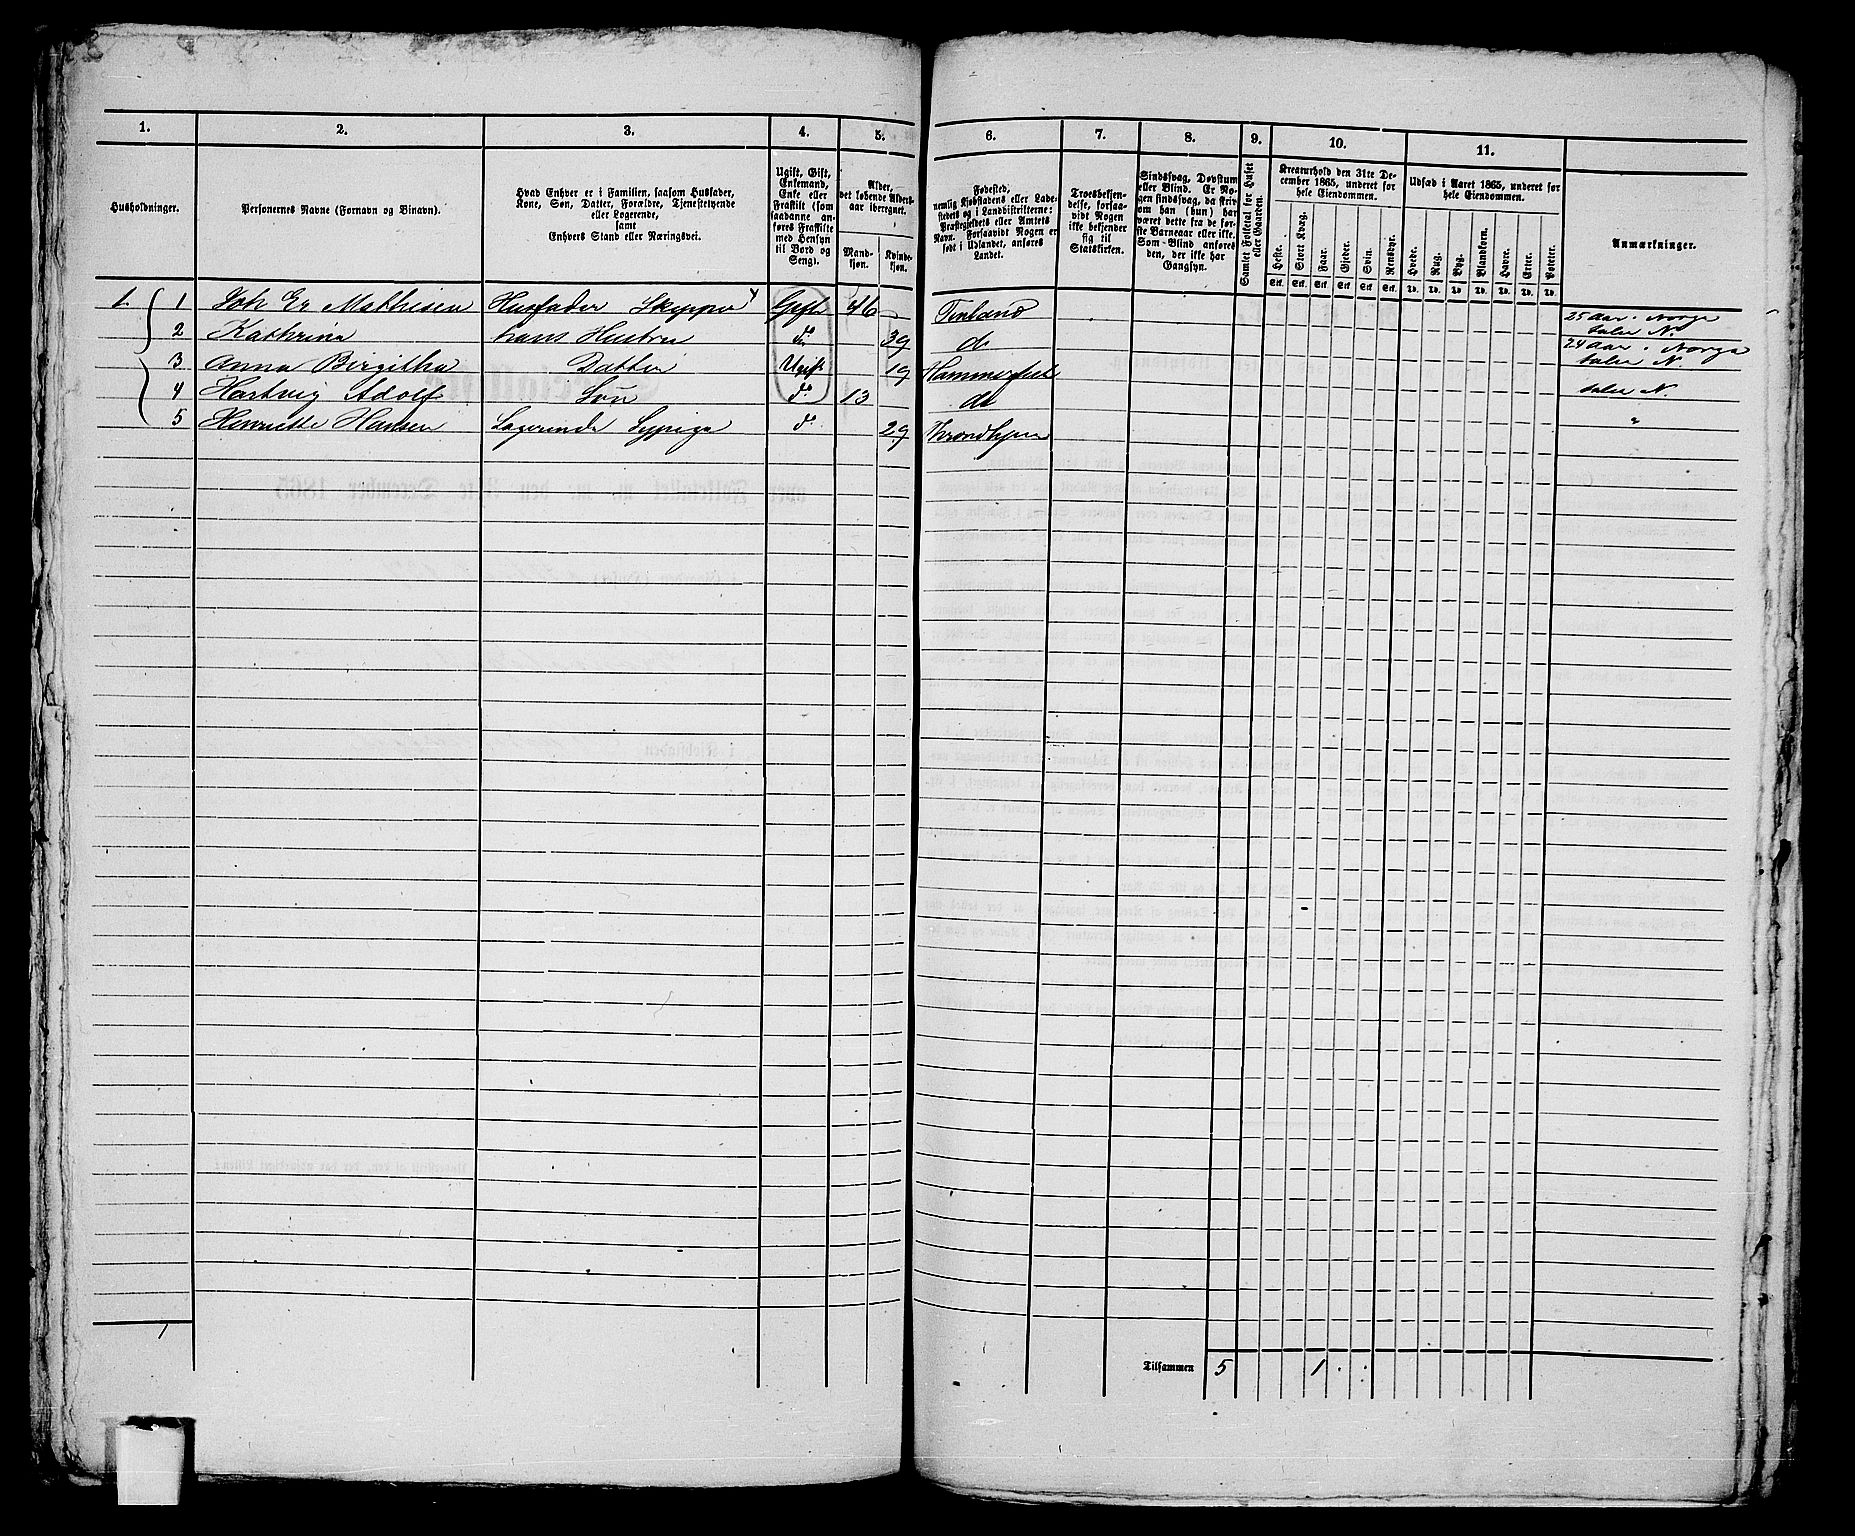 1. 2. 3. 4. 5. 6. 7. 8. 9. 10. 11.
Husholdninger.
Personernes Navne (Fornavn og Binavn).
Hvad Enhver er i Familien, saasom Husfader,
Kone, Søn, Datter, Forældre, Tjenestetyende
eller Logerende,
samt
Enhvers Stand eller Næringsvei.
Ugift, Gift,
Enkemand,
Enke eller
Fraskilt (som
saadanne an-
føres Fraskilte
med Hensyn
til Bord og
Seng).
Alder,
det løbende Alders-
aar iberegnet.
Mand-
kjøn.
Kvinde-
kjøn.
Fødested,
nemlig Kjøbstadens eller Lade-
stedets og i Landdistrikterne:
Præstegjeldets eller Amtets
Navn. Forsaavidt Nogen er
født i Udlandet, anføres
Landet.
Troesbekjen-
delse, forsaa-
vidt Nogen
ikke bekjender
sig til
Statskirken.
Sindssvag, Døvstum
eller Blind. Er No-
gen sindssvag, da skriv
om han (hun) har
været dette fra de før-
ste Barneaar eller ikke.
Som Blind anføres
den, der ikke har
Gangsyn.
Samlet Folketal for Huset
eller Gaarden.
Kreaturhold den 31te De-
cember 1865, underet for
hele Eiendommen.
Heste. Stort Kvæg. Faar. Gjeder. Svin. Rensdyr.
Stk. Stk. Stk. Stk. Stk. Stk.
Udsæd i Aaret 1865, underet for
hele Eiendommen.
Hvede. Rug. Byg. Blandkorn. Havre. Erter. Poteter.
Td. Td. Td. Td. Td. Td. Td.
Anmærkninger.
1 1 Joh Er Mathisen Husfader Skypper Gift 46 Finland 25 Aar i Norge
taler N.
2 Kathrina hans Hustru do 39 do 24 Aar i Norge
taler N.
3 Anna Birgitha Datter Ugift 19 Hammerfest
4 Hartvig Adolf Søn do 13 do taler N.
5 Henriette Hansen Logerende Sypige do 29 Throndhjem "
1
Tilsammen 5 1